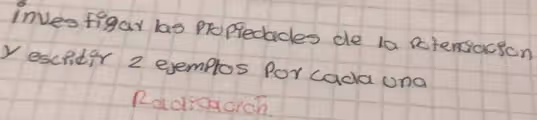 investigar las propiedades de la potenciacion
y escribir 2 ejemplos por cada una
Radicacion